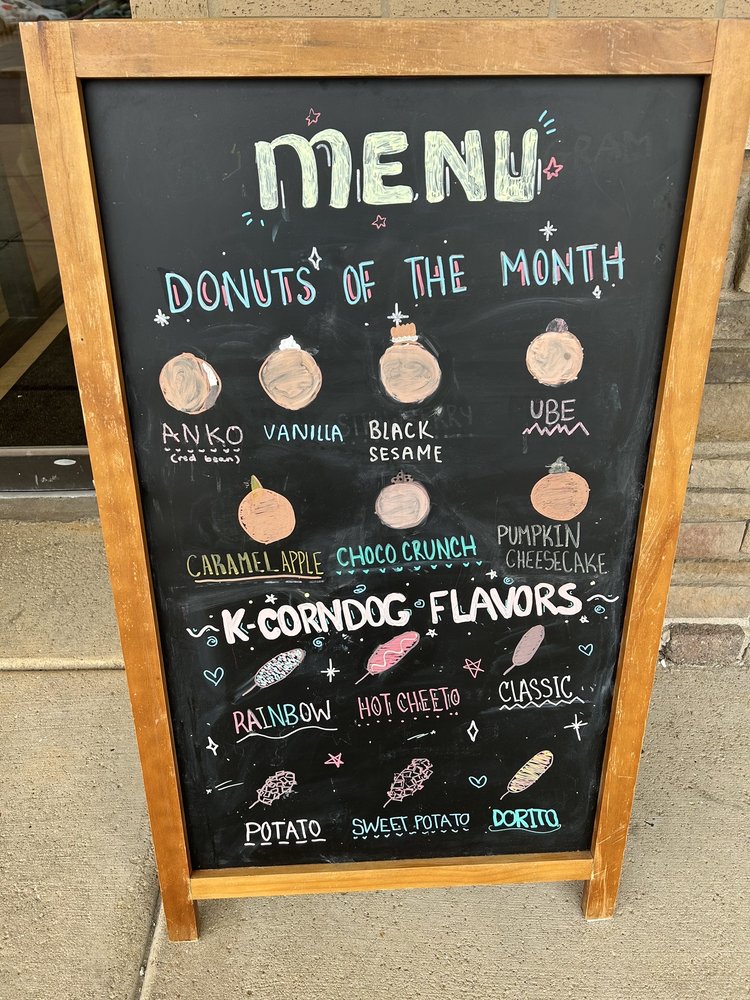 MENU
DONUTS OF THE MONTH
ANKO
(red bean)
VANILLA
BLACK
SESAME
UBE
CARAMEL APPLE
CHOCO CRUNCH
PUMPKIN
CHEESECAKE
K-CORNDOG FLAVORS
RAINBOW
HOT CHEETO
CLASSIC
POTATO
SWEET POTATO
DORITO